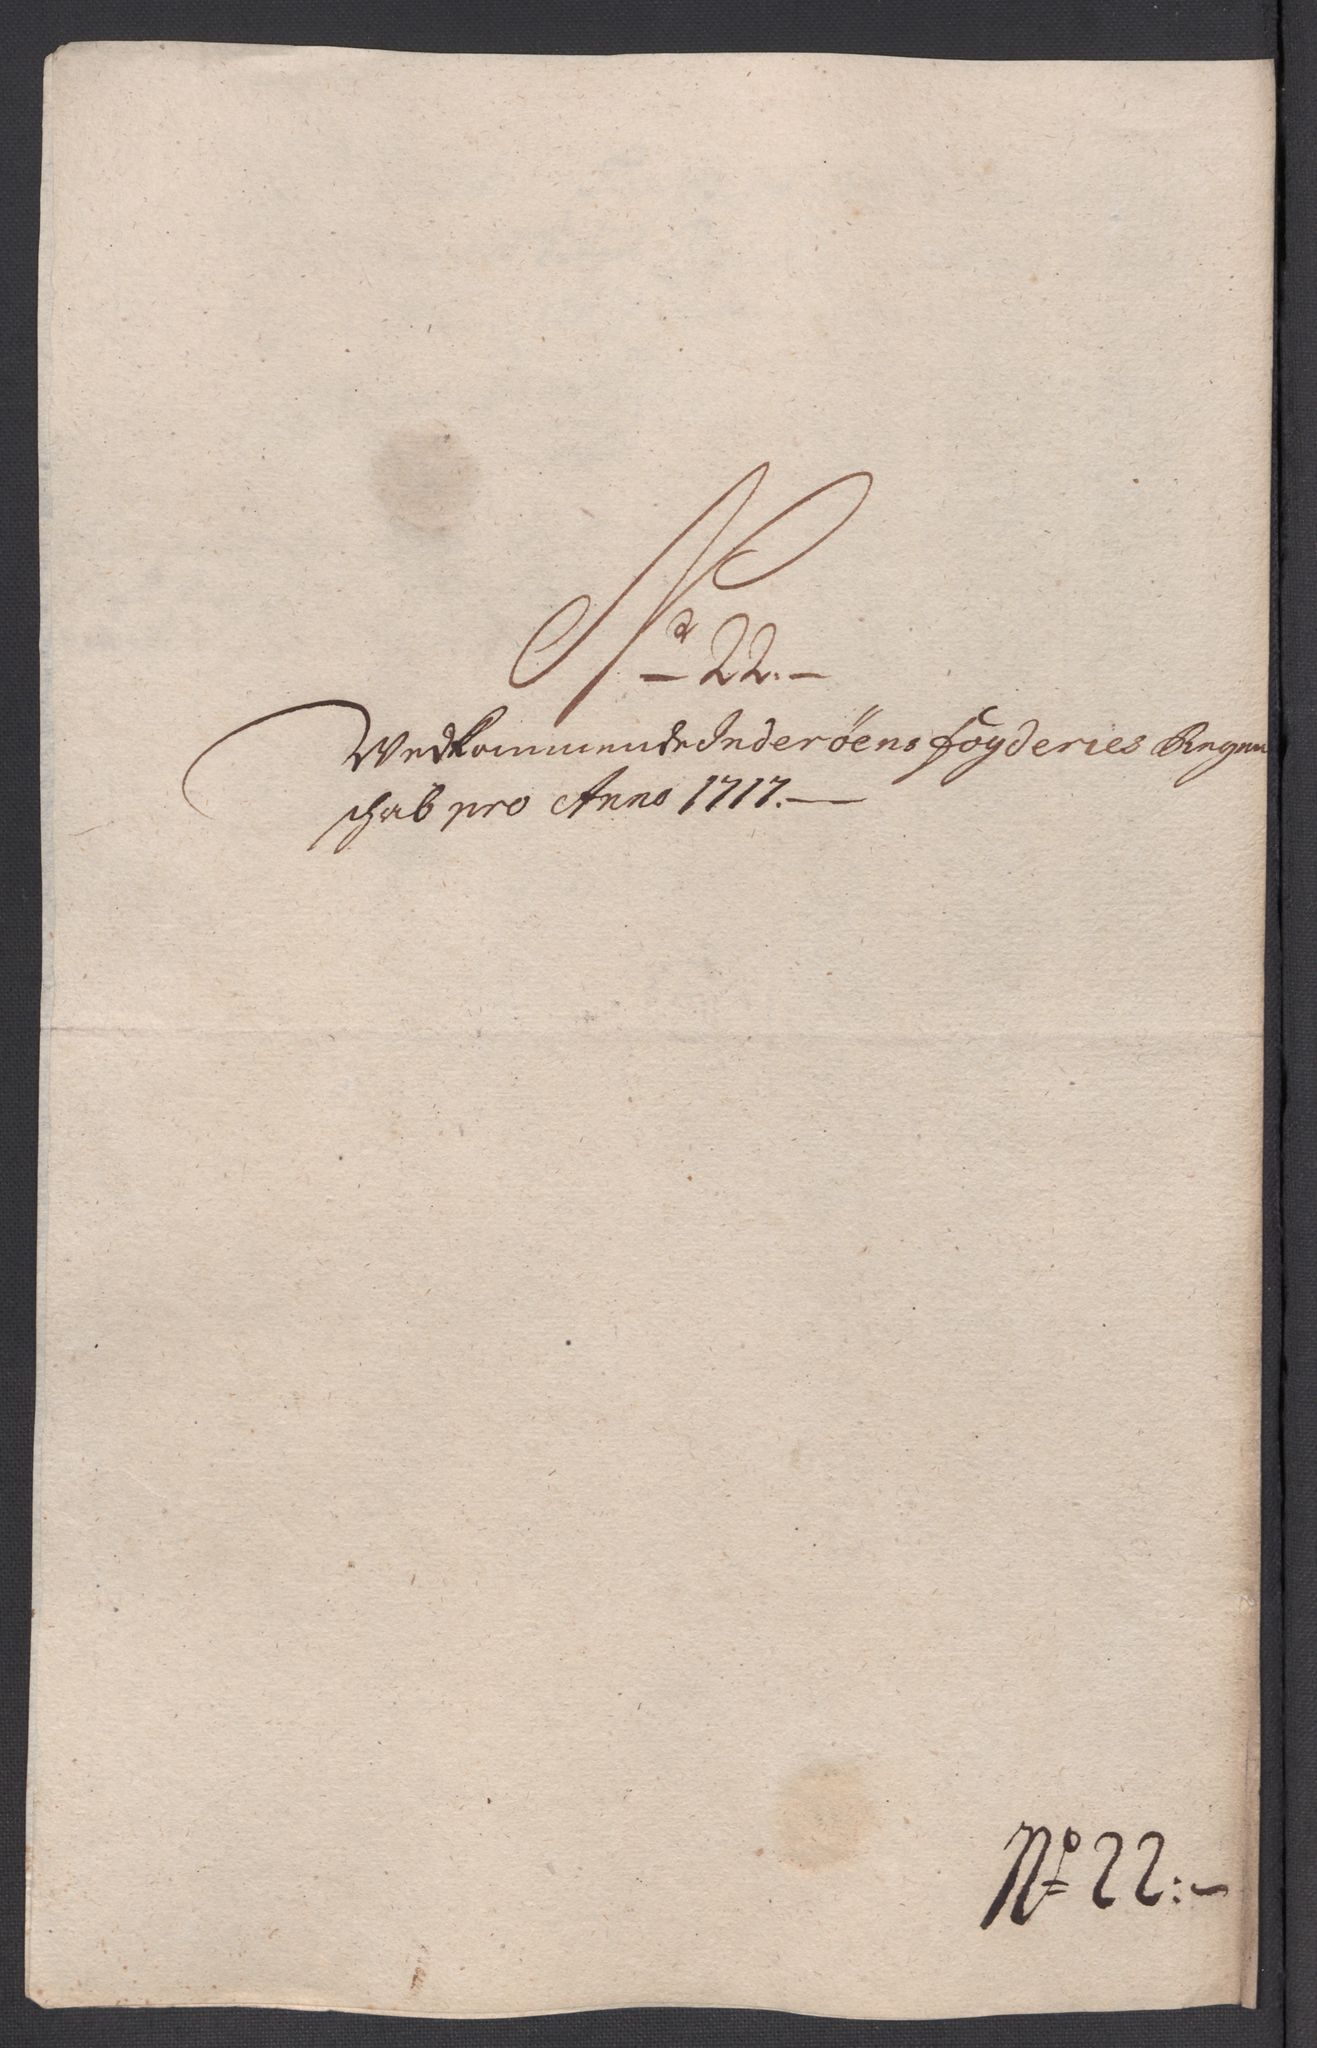 No 22.
Vedkommende Inderöens fögderies Regen
schab pro Anno 1717.
No 22: